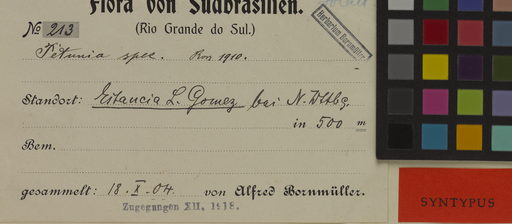 Flora von Südbrasilien.
№ 213
(Rio Grande do Sul.)
Herbarium Bornmüller
Petunia spec.
1910.
Standort: Estancia L. Gomez bei N. Wttbg.
in 500 m
Bem.
gesammelt: 18. X. 04. von Alfred Bornmüller.
Zugegangen XII. 1918.
SYNTYPUS